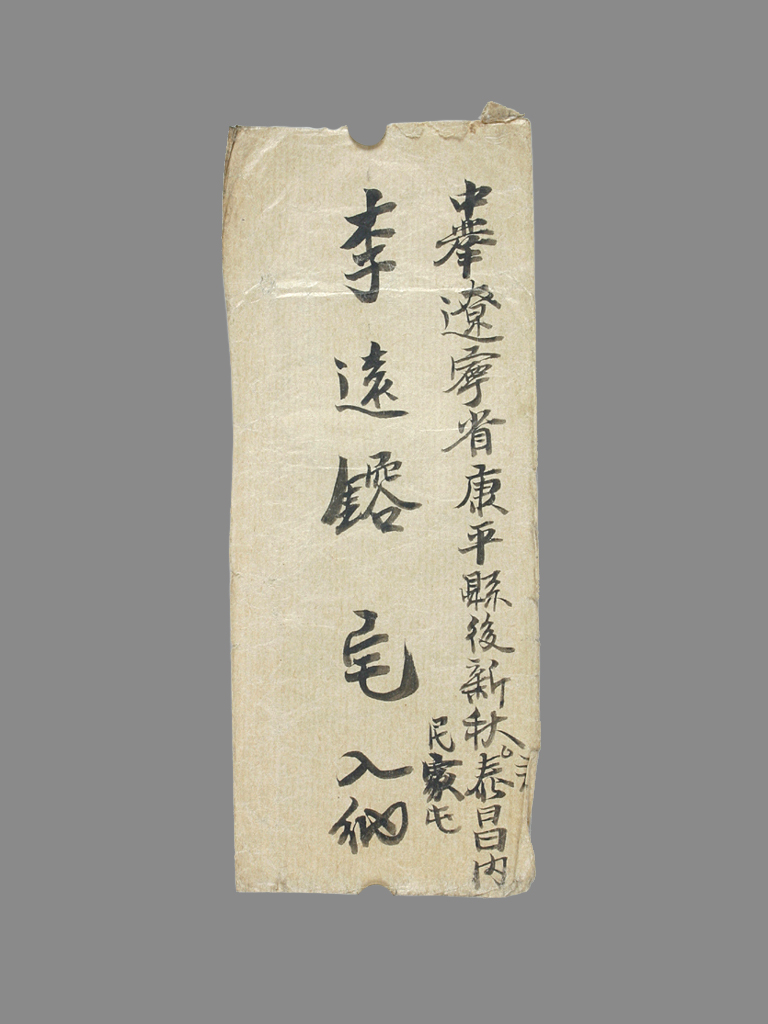 中華遼寧省康平縣後新秋泰昌內
民家屯
李遠鎔宅入納